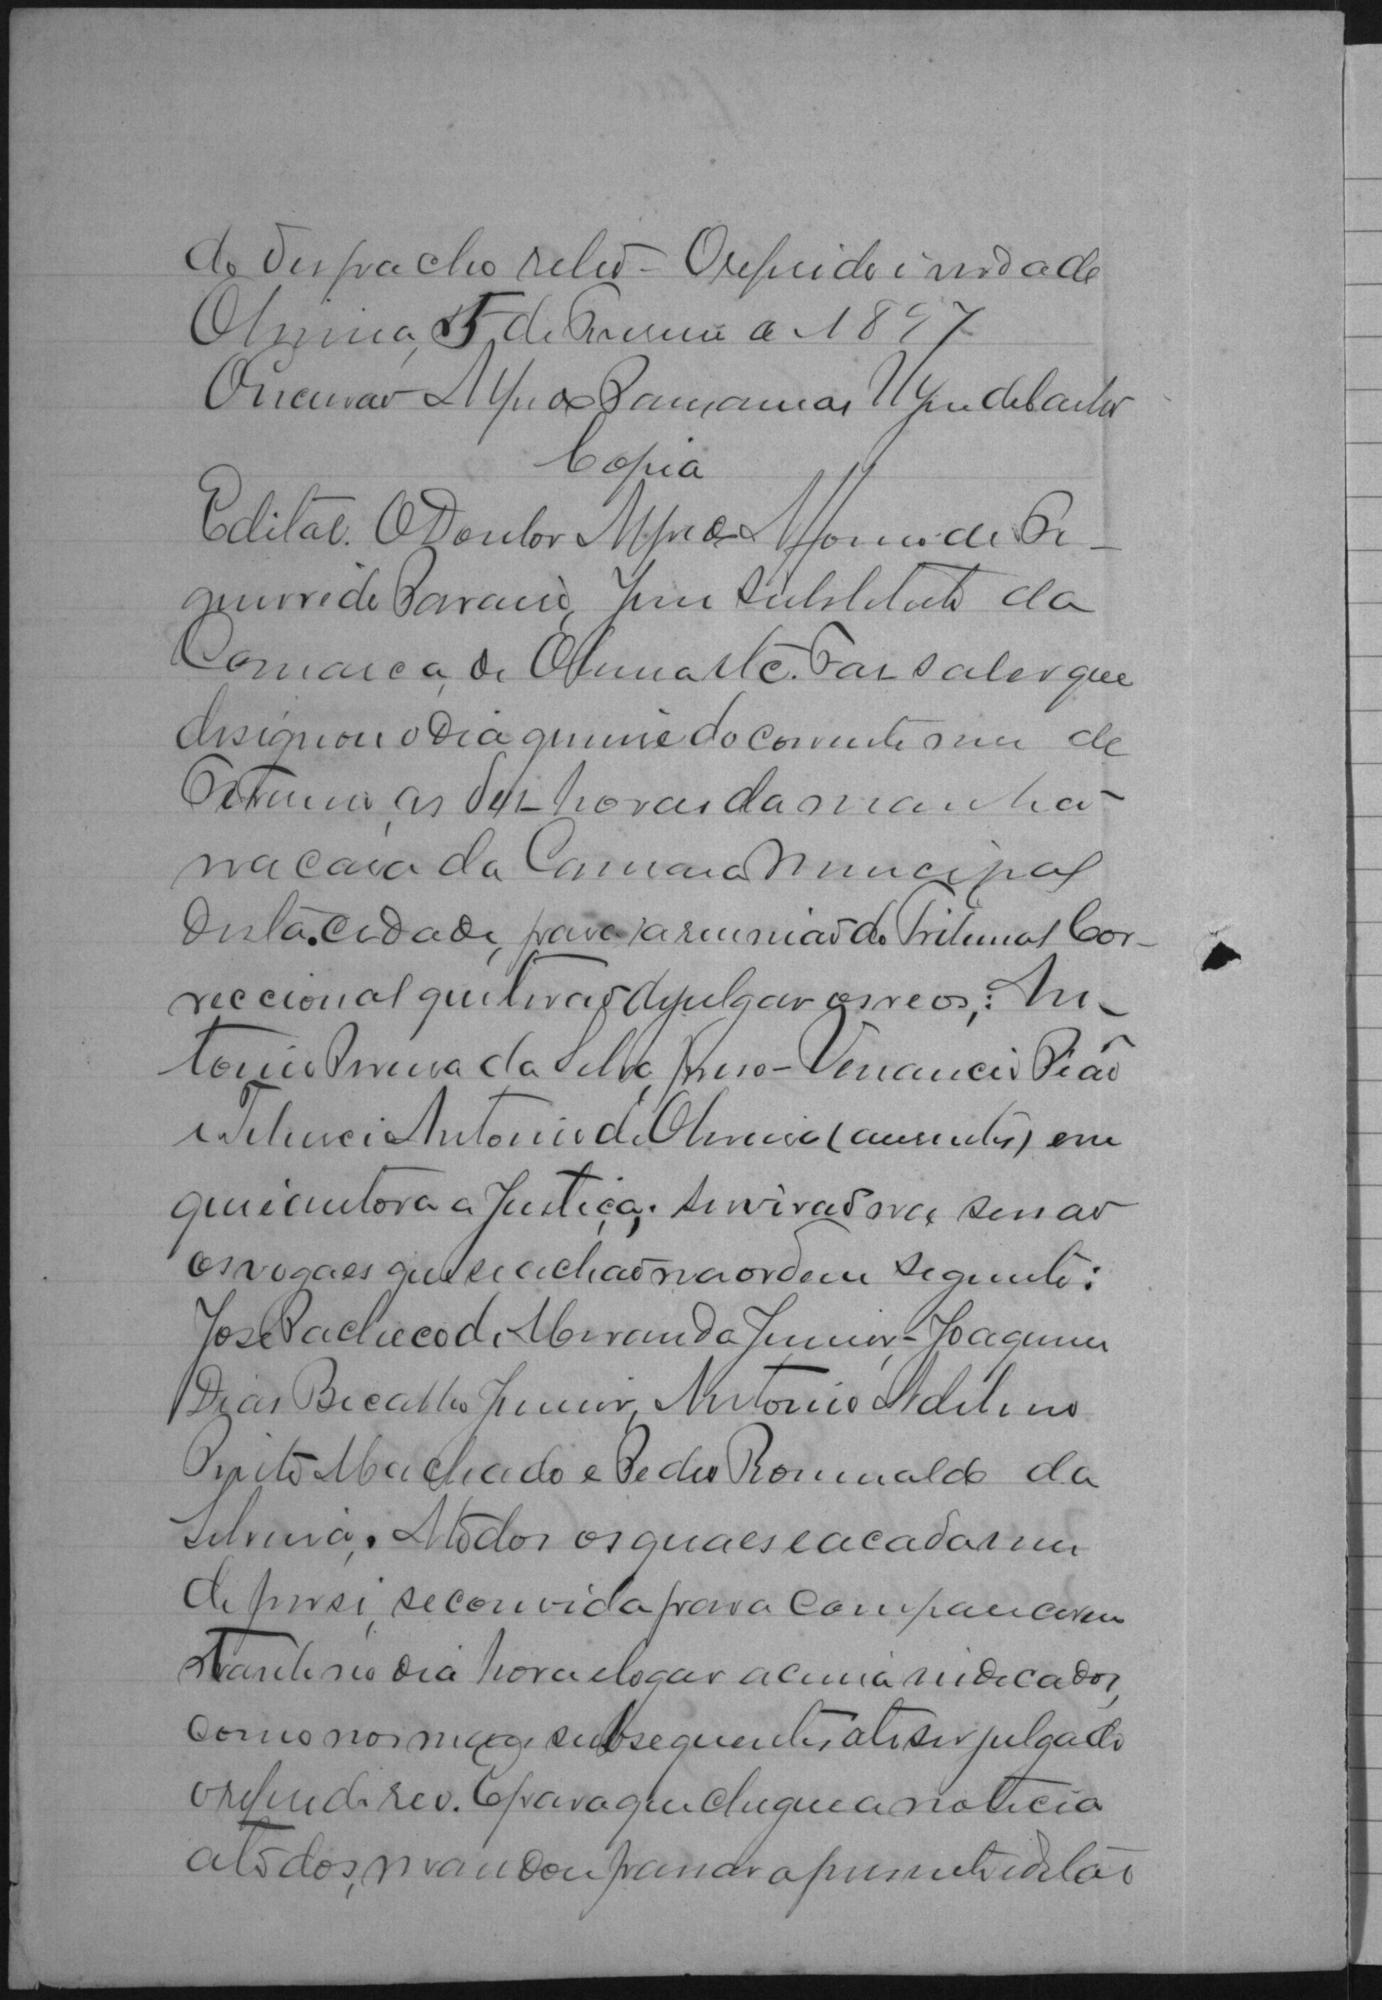 do despacho retro - O referido é verdade
Olinda, 5 de Fevereiro de 1897
O Escrivão Alfredo
Copia
Edital. O Doutor Alfredo Affonso de
Juiz substituto da
Comarca de Olinda etc. Faz saber que
designou o dia quinze do corrente mez de
Fevereiro, as dez horas da manhã
na casa da Camara Municipal
desta cidade, para a reunião do Tribunal Cor-
reccional que terá de julgar os reos, : An-
tonio Pereira da Silva, preso - Venancio Pião
e Antonio de Oliveira (ausentes) em
que é autora a Justiça. Servirão na
os vogaes que se achão na ordem seguinte:
José Pacheco de Miranda Junior - Joaquim
Dias Bicalho Junior, Antonio Adelino
Machado e Pedro Romualdo da
Silveira. A todos os quaes e a cada um
de per si, se convida para comparecerem
tanto no dia hora e logar acima indicados,
como nos mais subsequentes até ser julgado
o referido reo. E para que chegue a noticia
a todos, mandou passar o presente edital